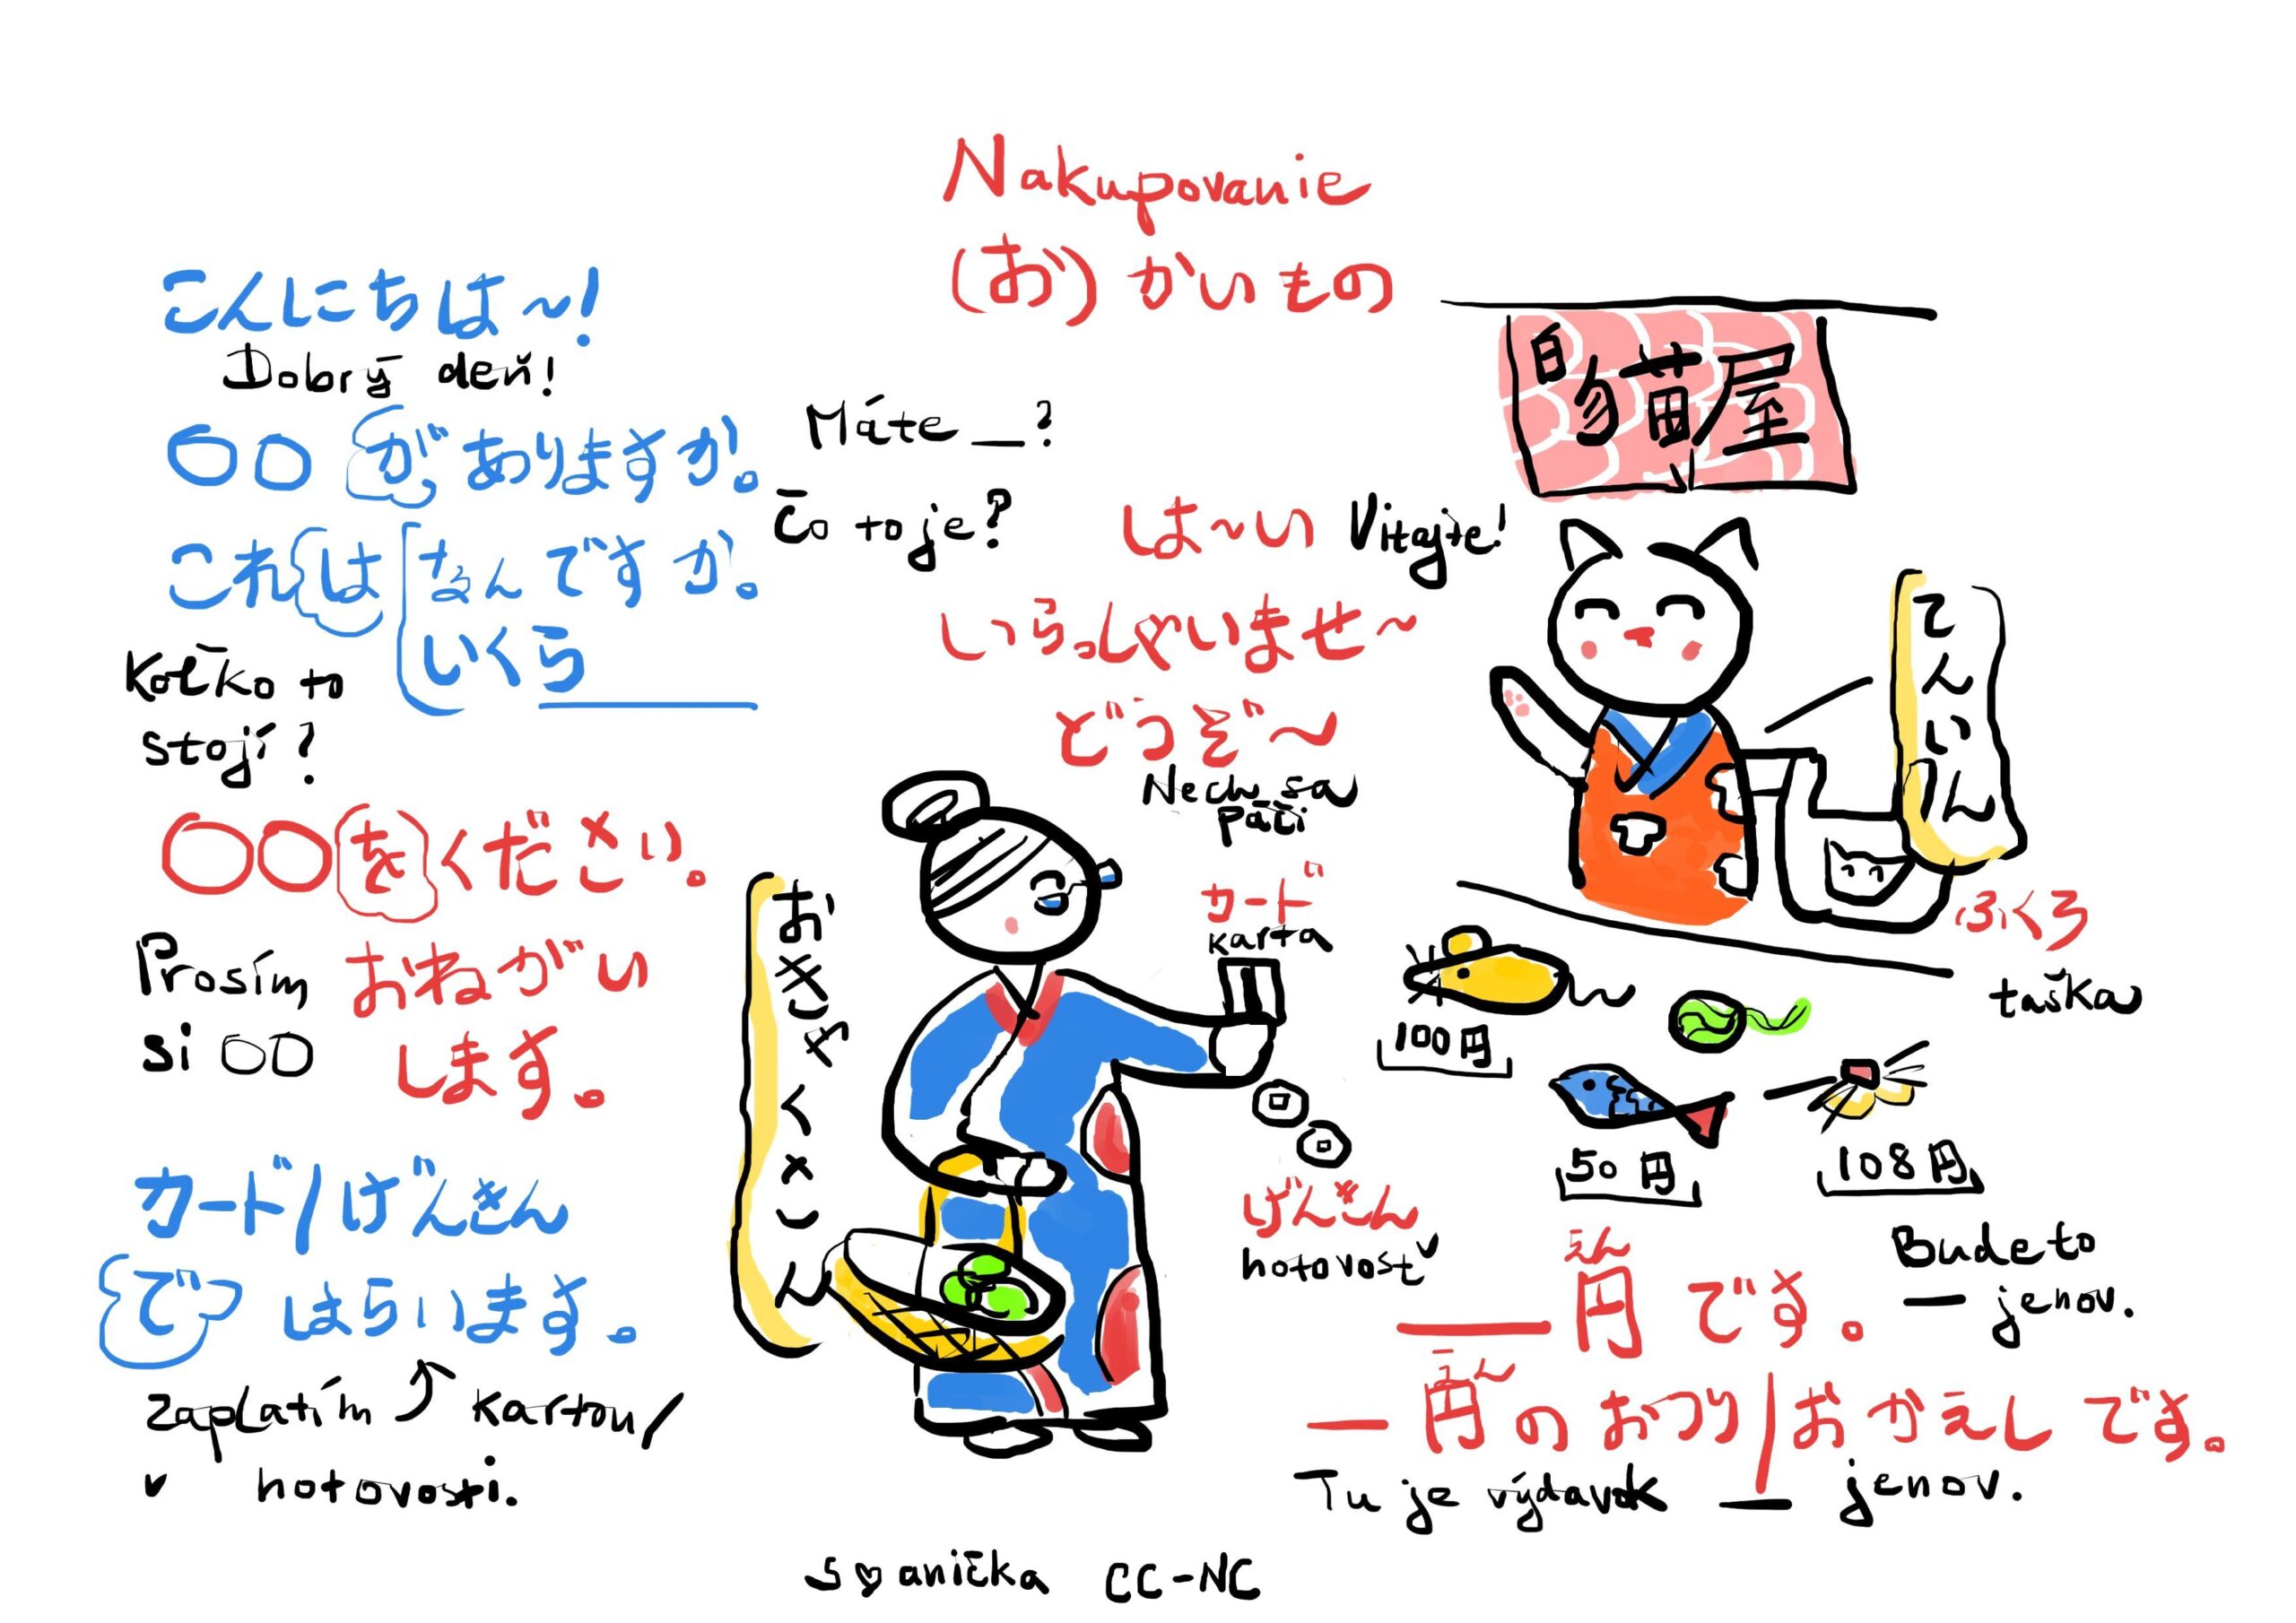 Nakupovanie
(お)かいもの
こんにちは～!
Dobrý deň!
〇〇がありますか。
Máte _?
これは なんですか。
Čo to je?
いくら
Koľko to
stojí?
〇〇をください。
Prosím
si 〇〇
おねがい
します。
カード/げんきん
で はらいます。
zaplatím ↑ kartou/
v hotovosti.
は～い Vitajte!
いらっしゃいませ～
どうぞ～
Nech sa
páči
おきゃくさん
カード
karta
げんきん
hotovosť
猫屋
てんいん
ふくろ
taška
100円
50円
108円
えん
__円です。
Bude to
_ jenov.
えん
_円のおつり/おかえしです。
Tu je výdavok _ jenov.
s♡anička CC-NC